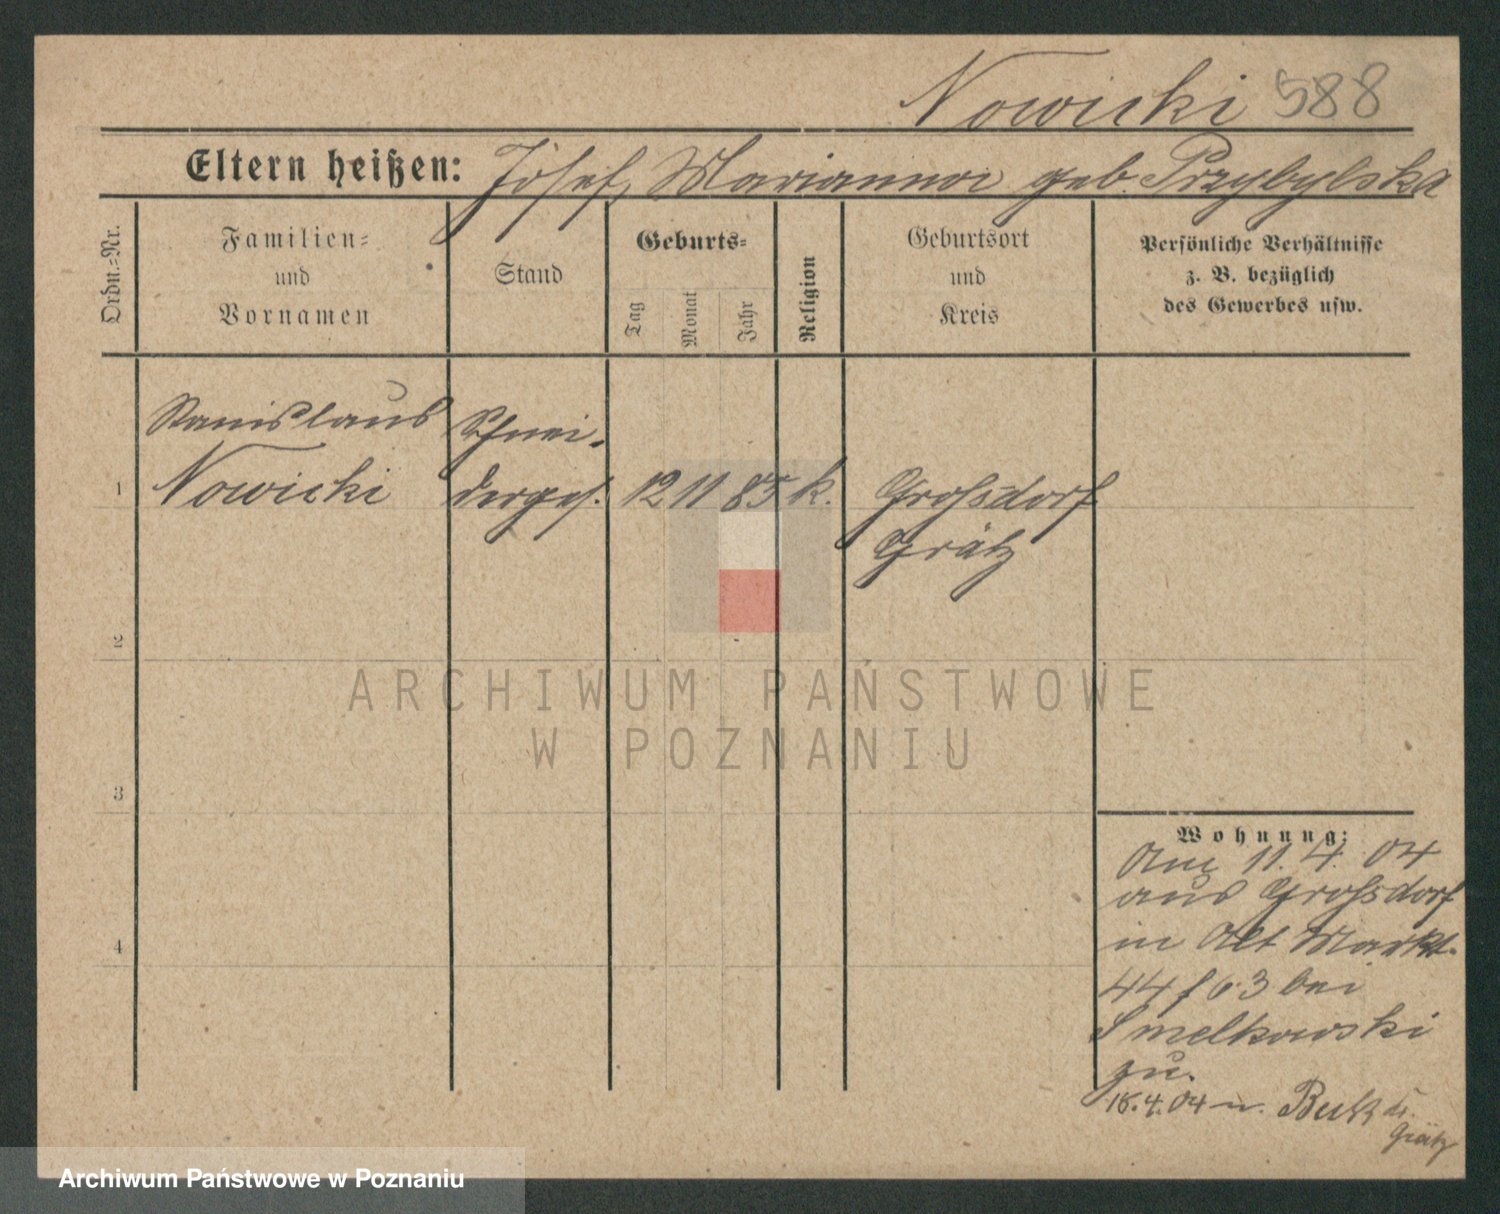 Nowicki 588
Eltern heißen: Josef, Marianna geb. Przybylska
Ordn.-Nr.
Familien-
und
Vornamen
Stand
Geburts-
Tag
Monat
Jahr
Religion
Geburtsort
und
Kreis
Persönliche Verhältnisse
z. B. bezüglich
des Gewerbes usw.
Stanislaus Schnei-
1 Nowicki derges. 12 11 85 k. Grossdorf
Grätz
2
3
4
Wohnung:
Am 11. 4. 04
aus Grossdorf
in Alt Markt
44 f 63 bei
Smelkowski
zu.
18.4.04 n. Buk Kr.
Grätz
ARCHIWUM PAŃSTWOWE
W POZNANIU
Archiwum Państwowe w Poznaniu